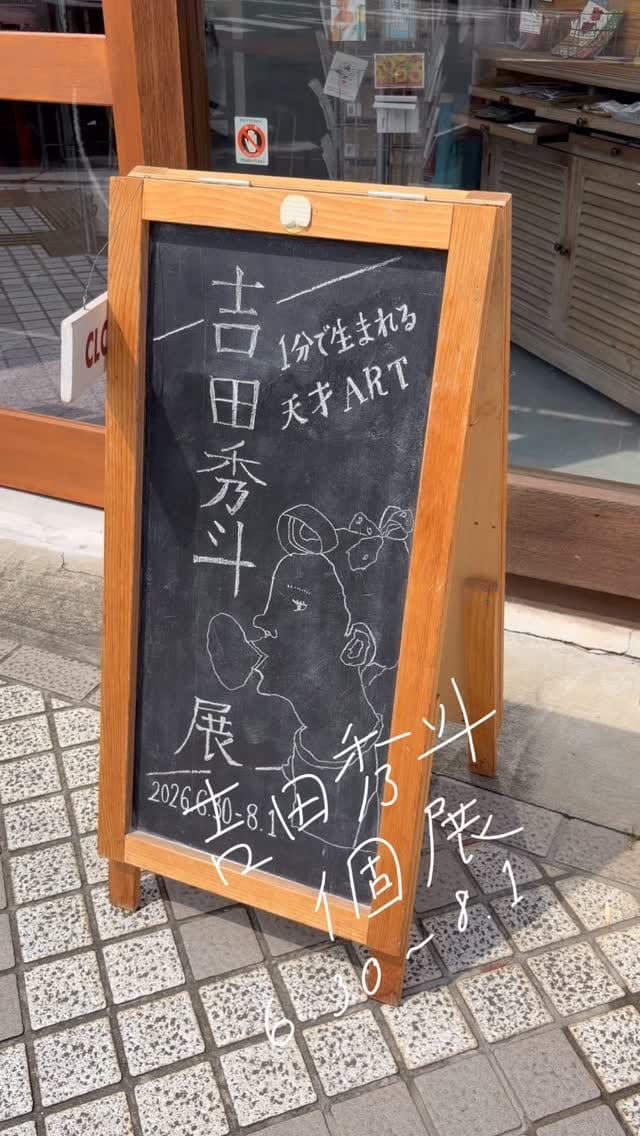 吉田秀斗
展
1分で生まれる
天才ART
2026.6.30~8.1
吉田秀斗
個展
6.30~8.1